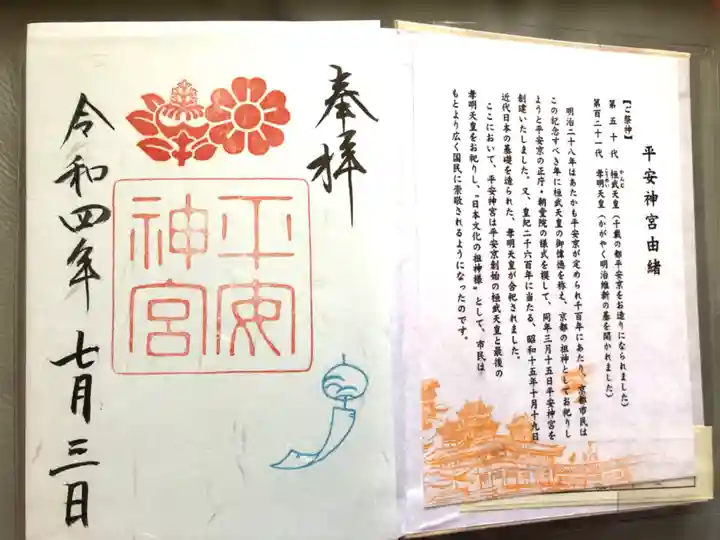 奉拝
平安
神宮
令和四年 七月三日
平安神宮由緒
【ご祭神】
第五十代 桓武天皇（千載の都平安京をお造りになられました）
かんむ
第百二十一代 孝明天皇（かがやく明治維新の基を開かれました）
こうめい
明治二十八年はあたかも平安京が定められ千百年にあたり、京都市民は
この記念すべき年に桓武天皇の御偉徳を称え、京都の祖神としてお祀りし
ようと平安京の正庁・朝堂院の様式を模して、同年三月十五日平安神宮を
創建いたしました。又、皇紀二千六百年に当たる、昭和十五年十月十九日
近代日本の基礎を造られた、孝明天皇が合祀されました。
ここにおいて、平安神宮は平安京創始の桓武天皇と最後の
孝明天皇をお祀りし、“日本文化の祖神様”として、市民は
もとより広く国民に崇敬されるようになったのです。